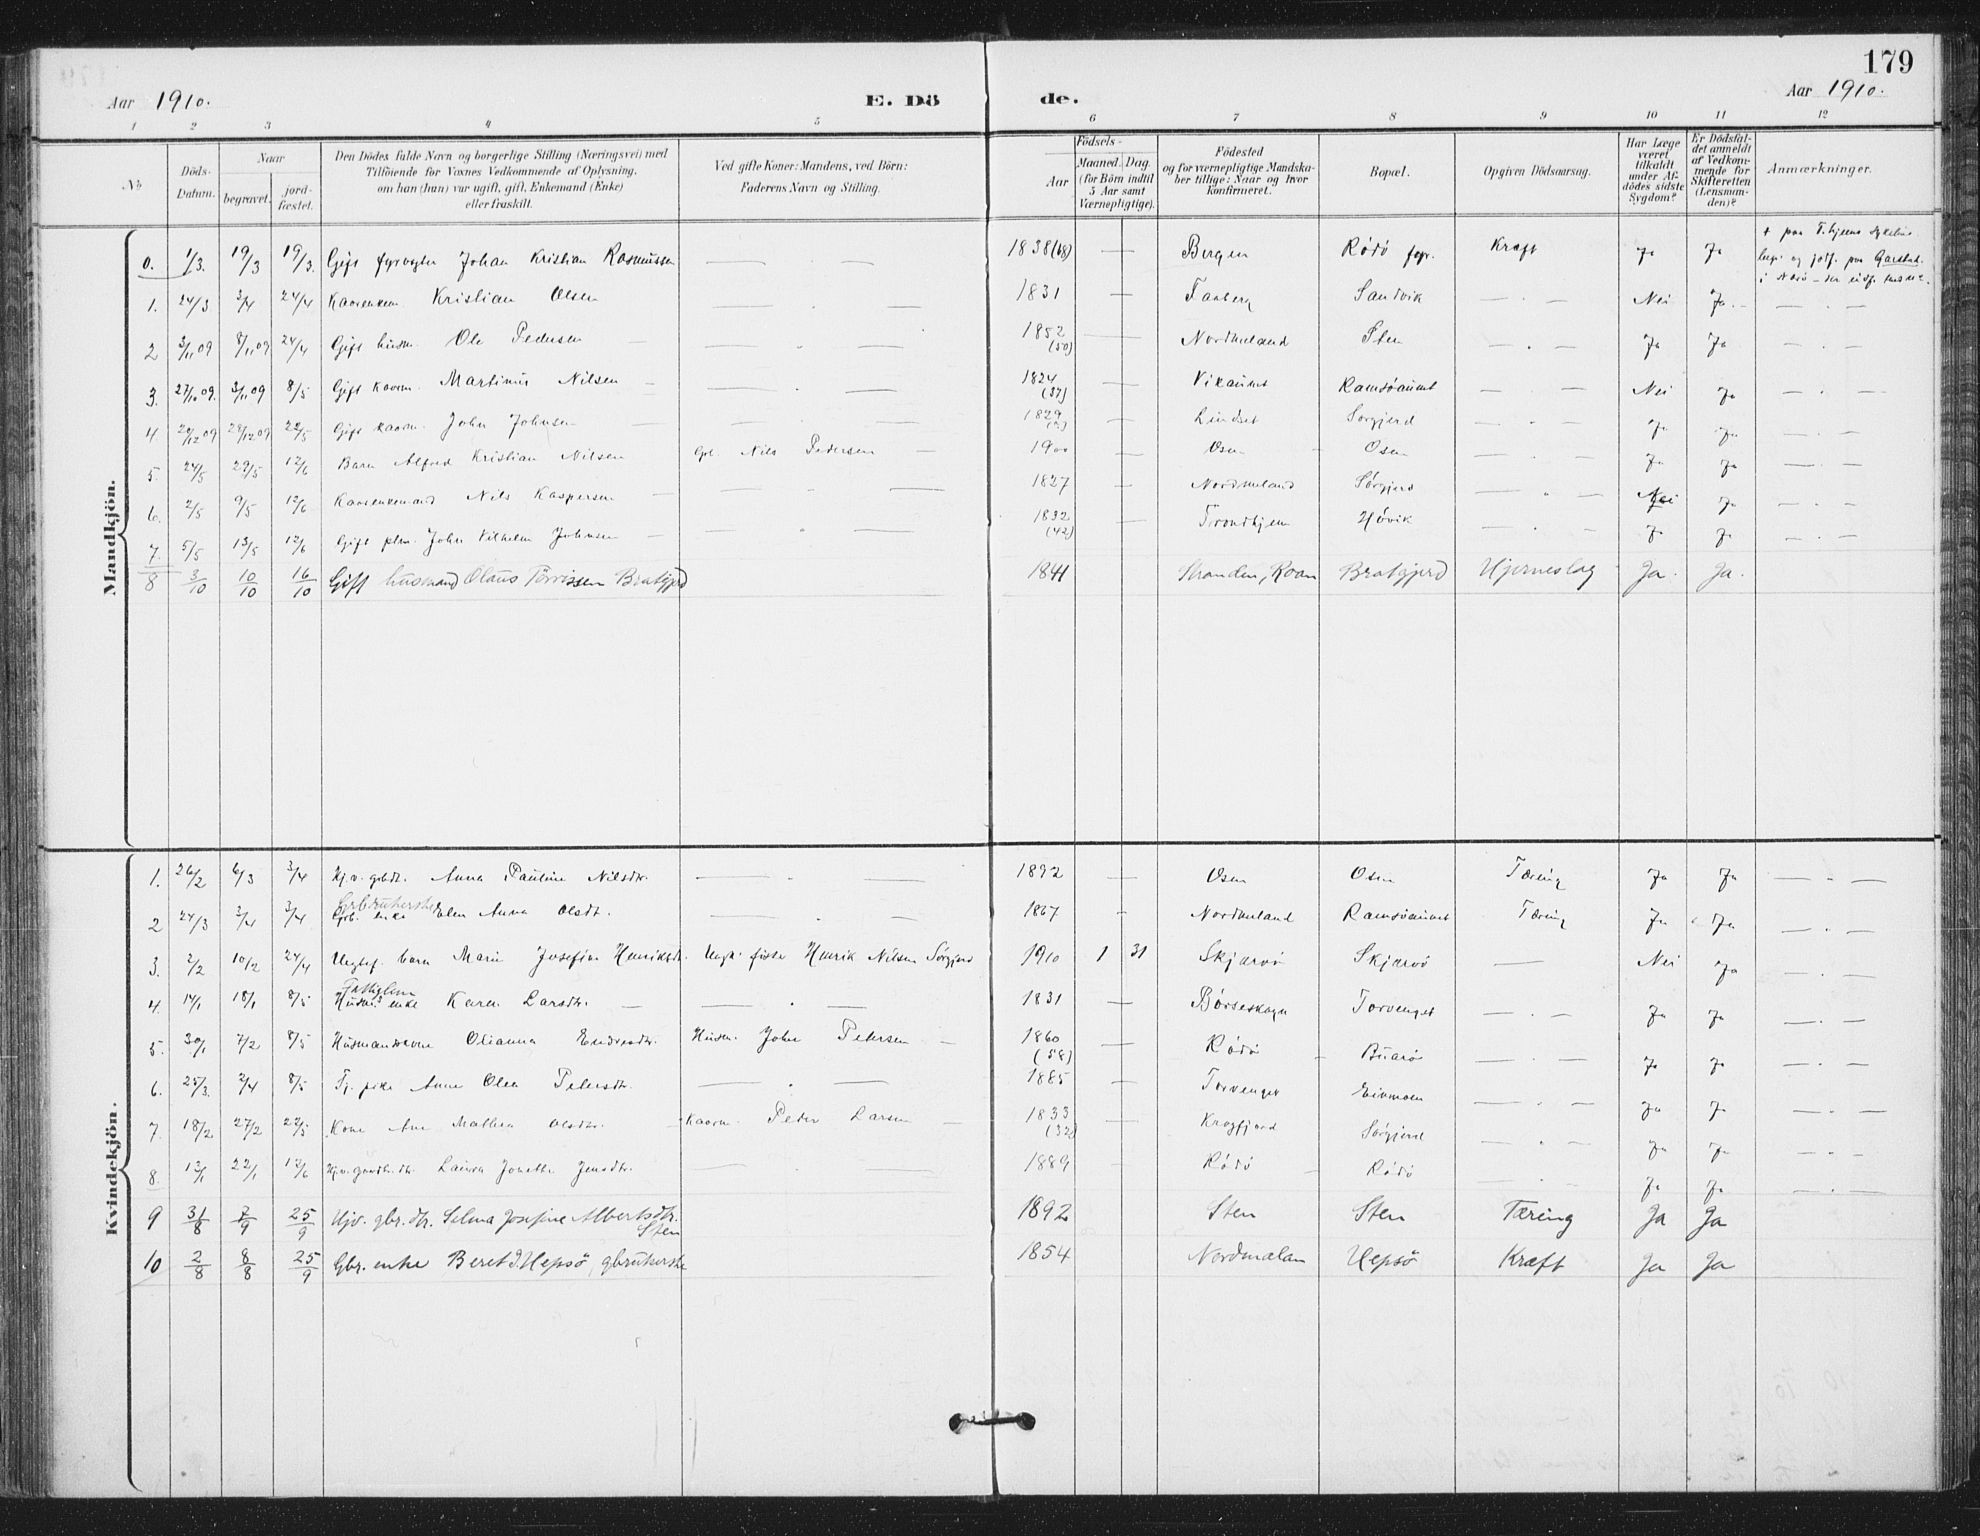 179
Aar 1910. E. Dö de. Aar 1910.
1 2 3 4 5 6 7 8 9 10 11 12
No
Döds-Datum.
Naar
begravet.
jord-fæstet.
Den Dödes fulde Navn og borgerlige Stilling (Næringsvei) med
Tilföiende for Voxnes Vedkommende af Oplysning,
om han (hun) var ugift, gift, Enkemand (Enke)
eller fraskilt.
Ved gifte Koner: Mandens, ved Börn:
Faderens Navn og Stilling.
Födsels-
Aar
Maaned. Dag.
(for Börn indtil
5 Aar samt
Værnepligtige).
Födested
og for værnepligtige Mandska-
ber tillige: Naar og hvor
Konfirmeret.
Bopæl.
Opgiven Dödsaarsag.
Har Læge
været
tilkaldt
under Af-
dödes sidste
Sygdom?
Er Dödsfal-
det anmeldt
af Vedkom-
mende for
Skifteretten
(Lensman-
den)?
Anmærkninger.
Mandkjön.
0. 1/3. 19/3 19/3. Gift fyrvogter Johan Kristian Rasmussen — . — 1838 (68) — Bergen Rödö fyr. Kræft Ja Ja
1. 24/3 3/4 24/4 Kaarenkem. Kristian Olsen — . — 1831 — Faaberg Sandvik — . — Nei Ja. — . —
2 3/11 09 8/11 09 24/4 Gift husm. Ole Pedersen — — . — 1852 (50) — Nordmeland Sten — . — Ja Ja — . —
3. 27/10 09. 3/11 09 8/5 Gift kaarm. Martinus Nilsen — — . — 1824 (37) — Vikaunet Ramsöaunet — . — Nei Ja — . —
4 29/12 09 22/5 Gift kaarm. John Johnsen — — . — 1829 — Lindset Sörgjerd — . — Ja Ja — . —
5. 24/5 29/5 12/6 Barn Alfred Kristian Nilsen Gbr. Nils Pedersen — 1900 — Osen Osen — . — Ja Ja — . —
6. 2/5 9/5 12/6 Kaarenkemand Nils Kaspersen — — . — 1827 — Nordmeland Sörgjerd — . — Nei Ja — . —
7. 5/5 13/5 12/6 Gift plm. John Vilhelm Johnsen — — . — 1832 (42) — Trondhjem Hövik — . — Ja Ja — . —
8 3/10 10/10 16/10 Gift husmand Olaus Törrissen Bratgjerd 1841 Stranden, Roan Bratgjerd Hjerneslag Ja. Ja.
Kvindekjön.
1. 26/2 6/3 3/4 Hjv. gbdtr. Anna Pauline Nilsdtr. — . — 1892 — Osen Osen Tæring Ja Ja — . —
Grbrukerske
2 24/3 3/4 3/4 Grb. enke Elen Anna Olsdtr. — . — 1867 — Nordmeland Ramsöaunet Tæring Ja Ja — . —
3. 2/2 10/2 24/4 Uegtef. barn Marie Josefine Henriksdtr. Ungk. fisker Henrik Nilsen Sörgjerd 1910 1 31 Skjærvö Skjærvö — Nei Ja — . —
4. 14/1 18/1 8/5 Husmd enke Karen Larsdtr. — — . — 1831 — Börseskogn Torvenget — . — Ja Ja — . —
5. 30/1 7/2 8/5 Husmandskone Olianna Endresdtr. Husm. John Petersen — 1860 (58) — Rödö Buarö — . — Ja Ja — . —
6. 25/3. 2/4 8/5 Tj. pike Anne Olea Petersdtr. — . — 1885 — Torvenget Einmoen — . — Ja Ja — . —
7. 18/2 27/2 22/5 Kone Ane Mathea Olsdtr. — Kaarm. Peder Larsen — 1833 (32) — Kragfjord Sörgjerd — . — Ja Ja — . —
8. 13/1 22/1 12/6 Laura Jonette Jensdtr. — . — 1889 — Rödö Rödö — . — Ja Ja — . —
9 31/8 7/9 25/9 Hjv. gbr. dtr. Selma Josefine Albertsdtr. 1892 Sten Sten Tæring Ja Ja
Sten
10 2/8 8/8 25/9 Gbr. enke Beret J. Hepsö, gbrukerske 1854 Nordmelan Hepsö Kræft Ja Ja